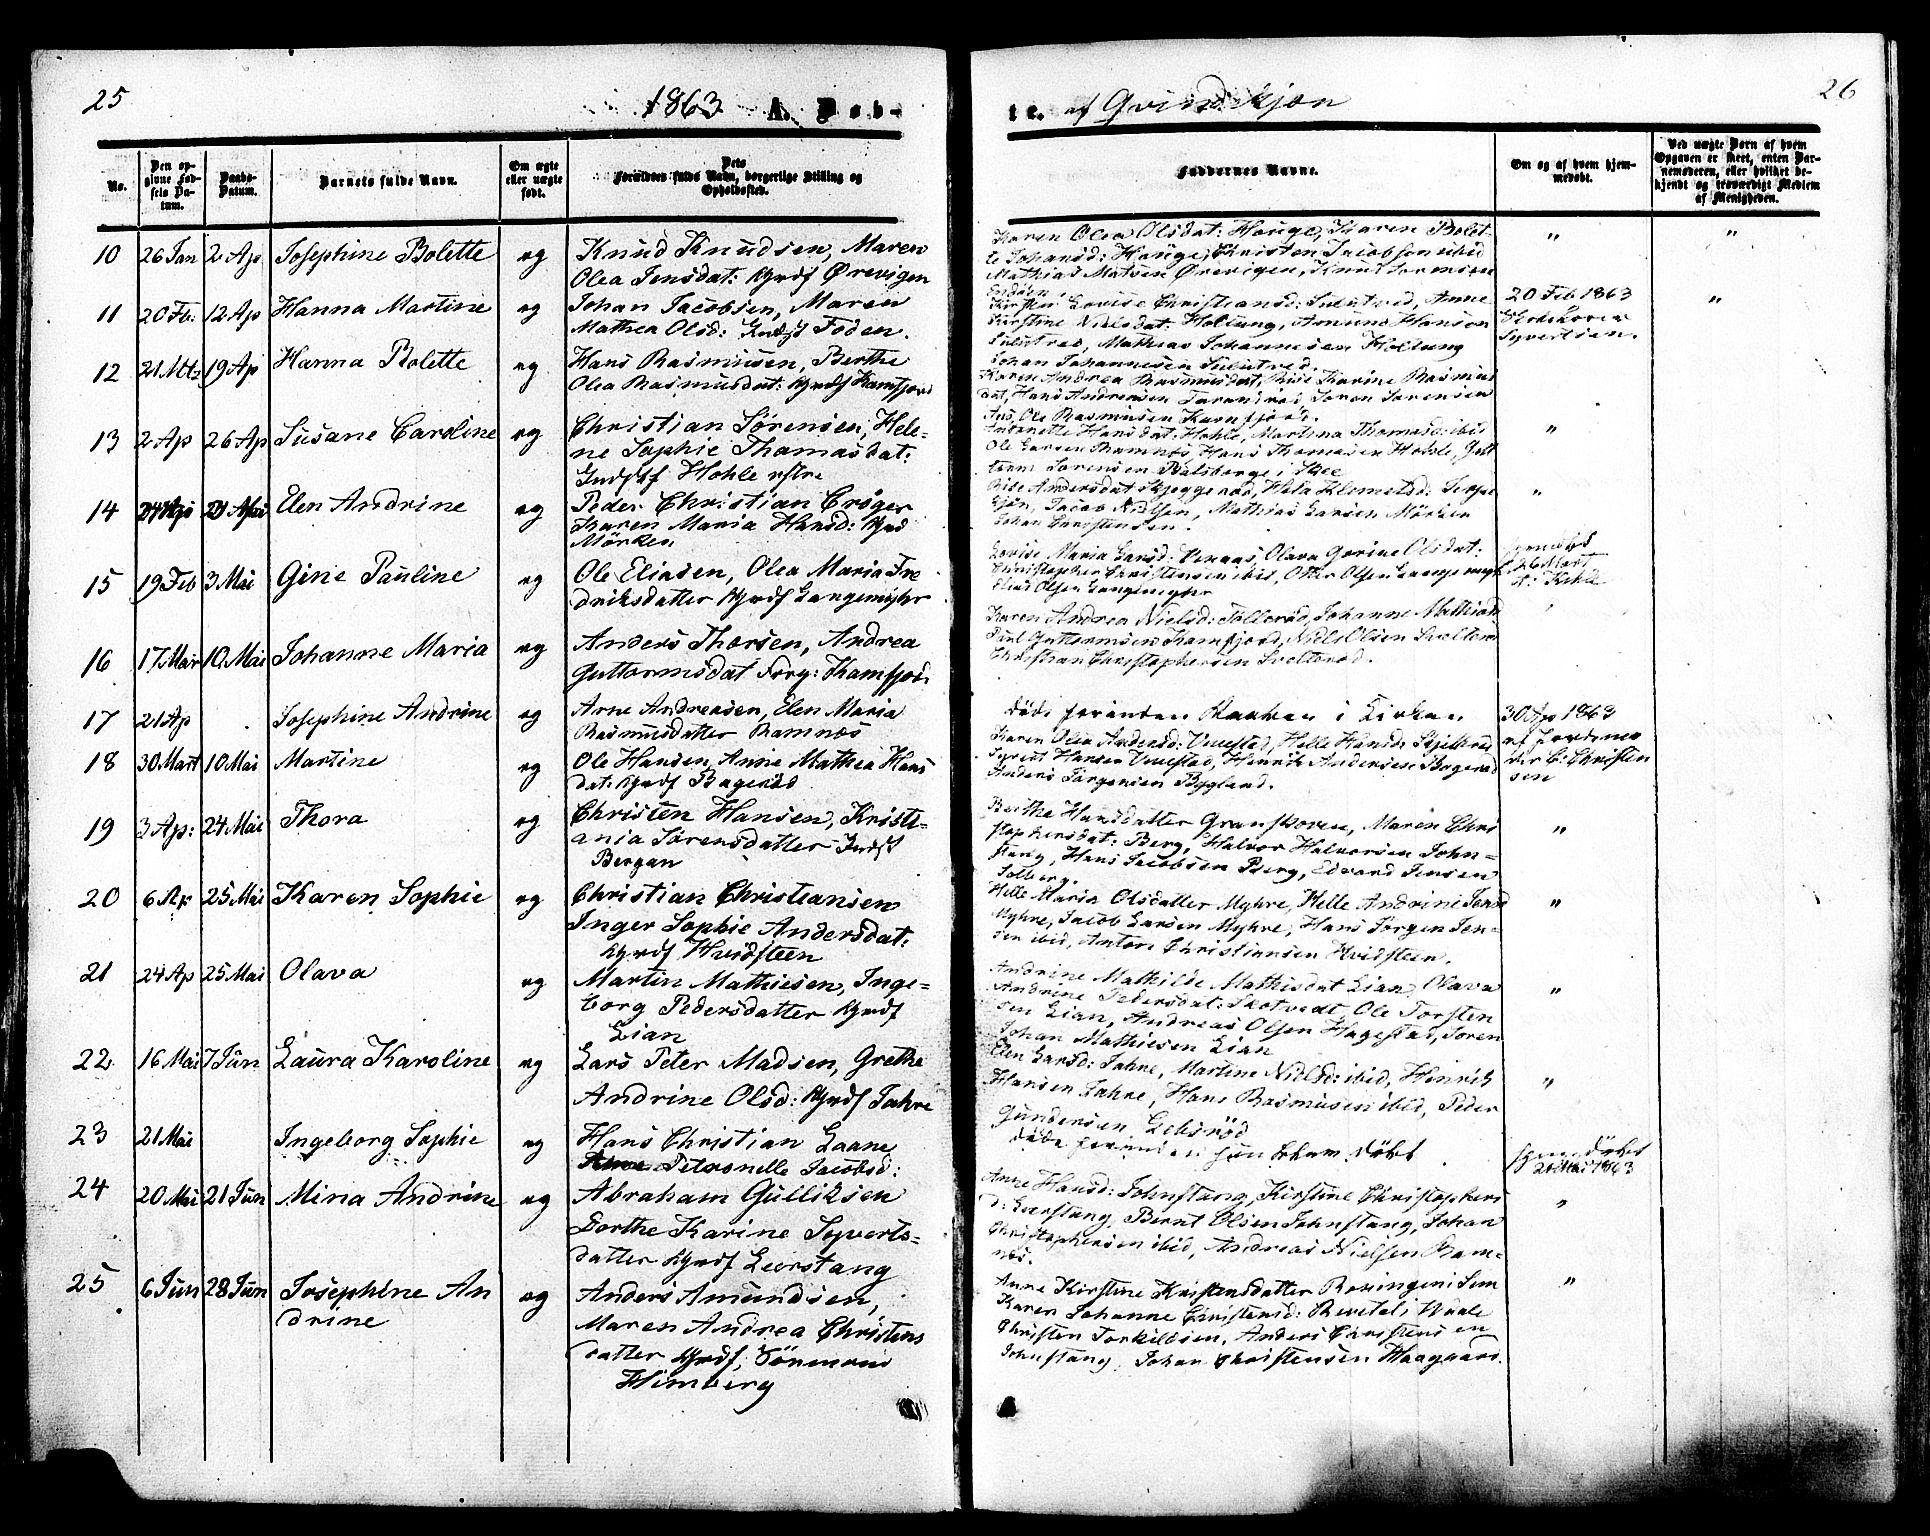 25
1863 A. Døb-
No.
Den op-
givne Fød-
sels Da-
tum.
Daabs-
Datum.
Barnets fulde Navn.
Om ægte
eller uægte
født.
Dets
Forældres fulde Navn, borgerlige Stilling og
Opholdssted.
10 26 Jan 2 Ap Josephine Bolette eg Knud Knudsen, Maren
Olea Jensdat: Gmdf Ørevigen
11 20 Fb: 12 Ap Hanna Martine eg Johan Jacobsen, Maren
Mathea Olsd: Indst Foden.
12 21 Mts 19 Ap Hanna Bolette eg Hans Rasmusen, Berthe
Olea Rasmusdat: Gmdf Kamfjord
13 2 Ap 26 Ap Susane Caroline eg Christian Sørensen, Hele-
ne Sophie Thomasdat:
Indstf Hohle
14 Elen Andrine eg Peder Christian Crøger
Karen Maria Hansd:
Mörken
15 19 Feb 3 Mai Gine Pauline eg Ole Eliasen, Olea Maria Fre
driksdatter Gmdf Langemyhr
16 17 Mar 10 Mai Johanne Maria eg Anders Thorsen, Andrea
Guttormsdat Forg: Kamfjord
17 21 Ap Josephine Andrine eg Arne Andreasen, Elen Maria
Rasmusdatter Ramnæs
18 30 Mart 10 Mai Martine eg Ole Hansen Anne Mathea Hans
dat: Gmdf Bagerød
19 3 Ap: 24 Mai Thora eg Christen Hansen, Kristi-
ania Sørensdatter Indst
Bergan
20 6 Ap 25 Mai Karen Sophie eg Christian Christiansen
Inger Sophie Andersdat:
Gmdf Hvidsteen
21 24 Ap 25 Mai Olava eg Martin Mathiesen, Inge-
borg Pedersdatter Gmdf
Lian
22 16 Mai 7 Jun Laura Karoline eg Lars Peter Madsen, Grethe
Andrine Olsd: Gmdf Jahre
23 21 Mai Ingeborg Sophie eg Hans Christian Laane
Petronelle Jacobsd:
24 20 Mai 21 Jun Mina Andrine eg Abraham Gulliksen
Dorthe Karine Syverts-
datter Gmdf Leerstang
25 6 Jun 28 Jun Josephine An
drine eg Anders Amundsen,
Maren Andrea Christens
datter Gmdf,
Himberg
26
te. af Qvindekjøn
Faddernes Navne.
Om og af hvem hjem-
medøbt.
Ved uægte Børn af hvem
Opgaven er skeet, enten Bar-
nemoderen, eller hvilket be-
kjendt og troværdigt Medlem
af Menigheden.
Karen Olea Olsdat: Hauge, Karen Bolet-
te Johansd: Hauge, Christen Jacobsen ibid " "
Mathias Matsen Ørevigen, Knud
Kirsti Lovise Christiansd: Anne 20 Feb 1863 "
Kirstine Nielsdat: Holtung, Amund Hansen
Mathias Johannesen Holtung Syvertsen.
Johan Johannesen
Karen Andrea Rasmusdat, Rise Karine Rasmus
dat, Hans Andreasen Søren Sørensen
Ole Rasmusen Kamfjord.
Antonette Hansdat: Hohle, Martina Thomasd: ibid "
Ole Larsen Ramnæs, Hans Thomasen Hohle, Gut
torm Sørensen i Skee
Rise Andersdat Skjeggerød, Klemetsd: "
Jacob Nielsen, Mathias Larsen Mörken
Johan Christensen.
Lovise Maria Larsd: Olava Gorine Olsdat:
Christopher Christensen ibid, Olsen Langemyhr 26 Mart
Elias Olsen Langemyhr
Karen Andrea Nielsd: Johanne Mathiasd
Paul Guttormsen Kamfjord, Niels Olsen
Christian Christophersen
døde forinden i Kirken 30 Ap 1863
Karen Olea Andersd: Unnestad, Helle Hansd: af Jordemo
Syvert Hansen Unnestad, Henrik Andersen Bagerød der C: Christen
Anders Jørgensen Bygland. sen
Berthe Hansdatter Granskoven, Maren Chri
stophersdat: Berg, Halvor Halvorsen John- "
stang, Hans Jacobsen Berg, Edvard Jensen
Solberg.
Helle Maria Olsdatter Myhre, Helle Andrine Jensd "
Myhre, Jacob Larsen Myhre, Hans Jørgen Jen-
sen ibid, Anton Christiansen Hvidsteen.
Andrine Mathilde Mathisdat Lian, Olava "
Andrine Pedersdat: Skotvedt, Ole Torsten
sen Lian, Andreas Olsen Hagestad, Søren
Johan Mathiesen Lian
Elen Larsd: Jahre, Martine Nielsd: ibid, Henrik "
Hansen Jahre, Hans Rasmusen ibid, Peder
Gundersen
døde forinden hun kham døbt døbt
1863
Anne Hansd: Johnstang, Kirstine Christophers "
d: Leerstang, Bernt Olsen Johnstang, Johan
Christophersen ibid, Andreas Nielsen Ram-
næs.
Anne Kirstine Kristensdatter i Sem "
Karen Johanne Christensd: Revetal i Vaale
Christen Torkildsen, Anders Christensen
Johnstang, Johan Christensen Haagaard.